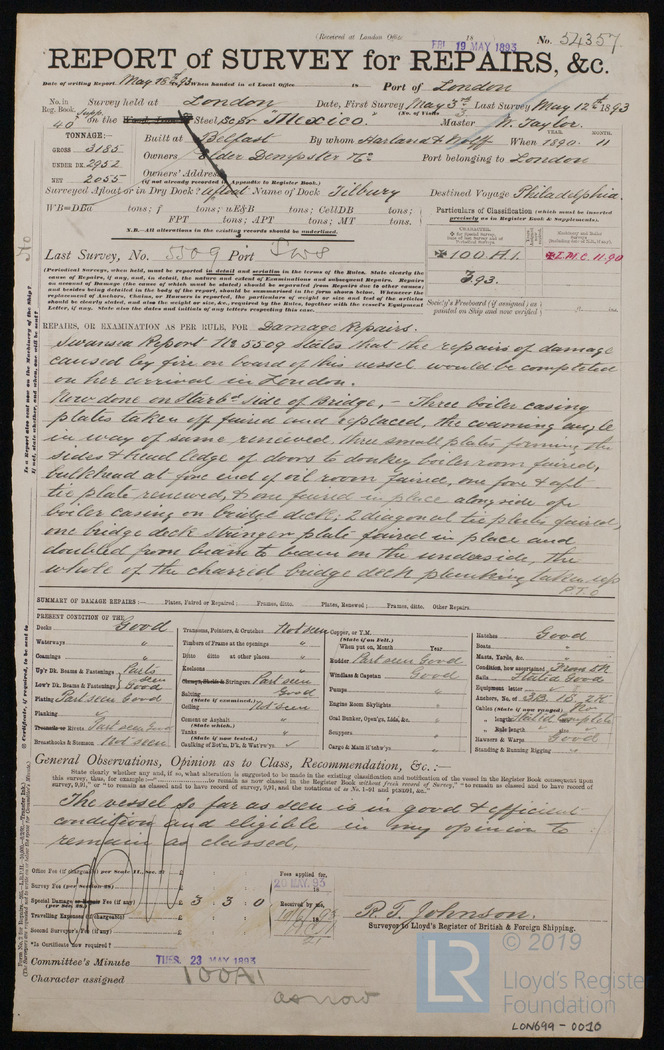 (Received at London Office 18
FRI 19 MAY 1893
No. 54357
REPORT of SURVEY for REPAIRS, &c.
Date of writing Report May 18th 93 When handed in at Local Office 18 Port of London
No. in Reg. Book. Survey held at London Date, First Survey May 3rd Last Survey May 12th 1893
(No. of Visits 3)
40 Supp. on the Steel Sc Sr Mexico. Master W. Taylor.
TONNAGE:—
GROSS 3185
UNDER DK. 2952
NET 2055
Built at Belfast By whom Harland & Wolff When 1890 YEAR. MONTH. 11
Owners Elder Dempster & Co Port belonging to London
Owners' Address
(if not already recorded in Appendix to Register Book.)
Surveyed Afloat or in Dry Dock? afloat Name of Dock Tilbury Destined Voyage Philadelphia.
WB=DBa tons; f tons; uE&B tons; CellDB tons;
FPT tons; APT tons; MT tons.
N.B.—All alterations in the existing records should be underlined.
Particulars of Classification (which must be inserted precisely as in Register Book & Supplements).
Last Survey, No. 5509 Port Sws
✠ 100 A1.
3,93.
✠ L.M.C. 11.90
(Periodical Surveys, when held, must be reported in detail and seriatim in the terms of the Rules. State clearly the
cause of Repairs, if any, and, in detail, the nature and extent of Examinations and subsequent Repairs. Repairs
on account of Damage (the cause of which must be stated) should be separated from Repairs due to other causes;
and besides being detailed in the body of the report, should be summarised in the form shown below. Whenever the
replacement of Anchors, Chains, or Hawsers is reported, the particulars of weight or size and test of the articles
should be clearly stated, and also the weight or size, &c., required by the Rules, together with the vessel's Equipment
Letter, if any. State also the dates and initials of any letters respecting this case.
Society's Freeboard (if assigned) as painted on Ship and now verified
REPAIRS, OR EXAMINATION AS PER RULE, FOR Damage Repairs.
Swansea Report No 5509 States that the repairs of damage
caused by fire on board of this vessel would be completed
on her arrival in London.
Now done on Starbd Side of Bridge,— Three boiler casing
plates taken off faired and replaced, the coaming angle
in way of same renewed three small plates forming the
sides & head ledge of doors to donkey boiler room faired,
bulkhead at fore end of oil room faired, one fore & aft
tie plate renewed, & one faired in place alongside of
boiler casing on bridge deck; 2 diagonal tie plates faired,
one bridge deck stringer plate faired in place and
doubled from beam to beam on the underside, the
whole of the charred bridge deck planking taken up
P.T.O
SUMMARY OF DAMAGE REPAIRS:— Plates, Faired or Repaired; Frames, ditto. Plates, Renewed; Frames, ditto. Other Repairs.
PRESENT CONDITION OF THE
Decks Good
Waterways "
Coamings "
Up'r Dk. Beams & Fastenings Parts seen
Low'r Dk. Beams & Fastenings Good
Plating Part seen Good
Planking
Rivets Part seen Good
Breasthooks & Stemson Not seen
Transoms, Pointers, & Crutches Not seen
Timbers of Frame at the openings "
Ditto ditto at other places "
Keelsons "
Stringers Part seen
Salting Good
(State if examined.)
Ceiling Not seen
Cement or Asphalt "
(State which.)
Tanks "
(State if now tested.)
Caulking of Bot'm, D'k, & Wat'rw'ys
Copper, or Y.M.
(State if on Felt.)
When put on, Month Year
Rudder Part seen Good
Windlass & Capstan Good
Pumps "
Engine Room Skylights "
Coal Bunker, Open'gs, Lids, &c. "
Scuppers "
Cargo & Main H'tchw'ys "
Hatches Good
Boats "
Masts, Yards, &c. "
Condition, how ascertained From Dk
Sails Stated Good
Equipment letter
Anchors, No. of 3B. 1S. 2K
Cables (State if now ranged) No
" length Stated Complete
" Rule length
Hawsers & Warps Good
Standing & Running Rigging "
General Observations, Opinion as to Class, Recommendation, &c.:—
State clearly whether any, and, if so, what alteration is suggested to be made in the existing classification and notification of the vessel in the Register Book consequent upon
this survey, thus, for example:—" to remain as now classed in the Register Book without fresh record of Survey," "to remain as classed and to have record of
survey, 9,91," or "to remain as classed and to have record of survey, 9,91, and the notations of
The vessel so far as seen is in good & efficient
condition and eligible in my opinion to
remain as classed.
Office Fee (if chargeable) per Scale II., Sec. £
Survey Fee (per Section 28) £
Special Damage or Repair Fee (if any) £ 3 3 0
(per Sec. 28.)
Travelling Expenses (if chargeable) £
Second Surveyor's Fee (if any) £
*Is Certificate now required?
Fees applied for,
20 MAY 93
Received by me,
R. T. Johnson.
Surveyor to Lloyd's Register of British & Foreign Shipping.
Committee's Minute TUES. 23 MAY 1893
Character assigned 100A1
as now
© 2019
LR
Lloyd's Register
Foundation
LON699-0010